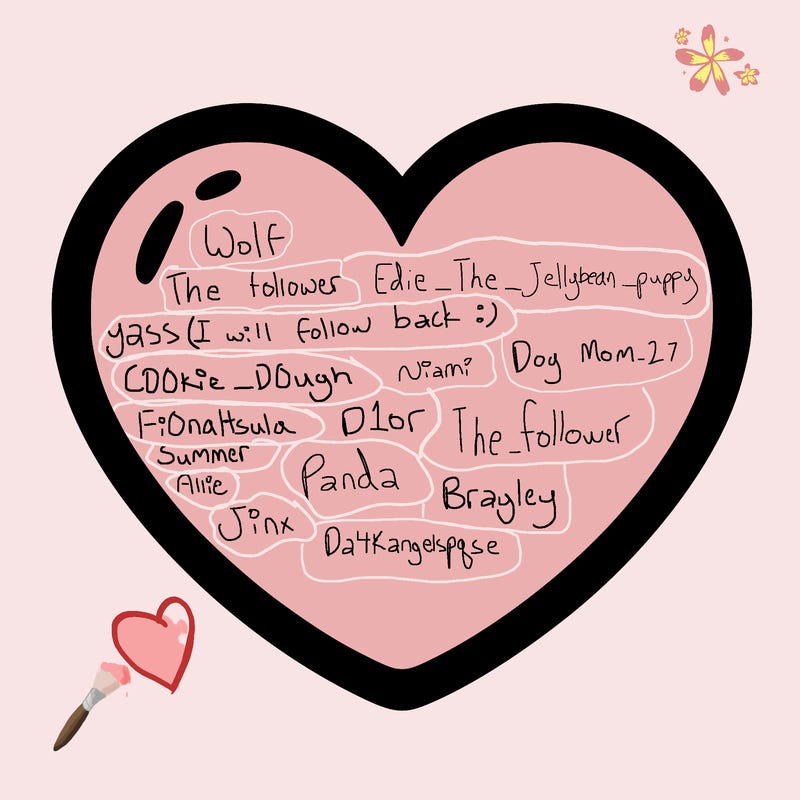 Wolf
The follower
Edie_The_Jellybean_puppy
yass (I will follow back :)
COOkie_DOugh
Niami
Dog Mom_27
FiOnaHsula
D1or
The_follower
Summer
Panda
Allie
Brayley
Jinx
Da4Kangelspqse